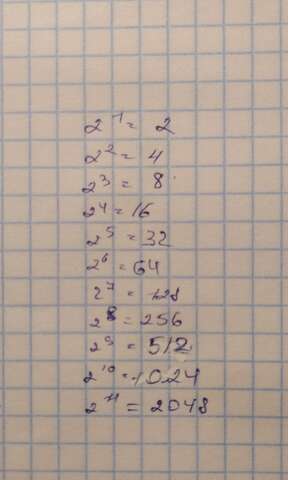 2¹ = 2
2² = 4
2³ = 8
2⁴ = 16
2⁵ = 32
2⁶ = 64
2⁷ = 128
2⁸ = 256
2⁹ = 512
2¹⁰ = 1024
2¹¹ = 2048